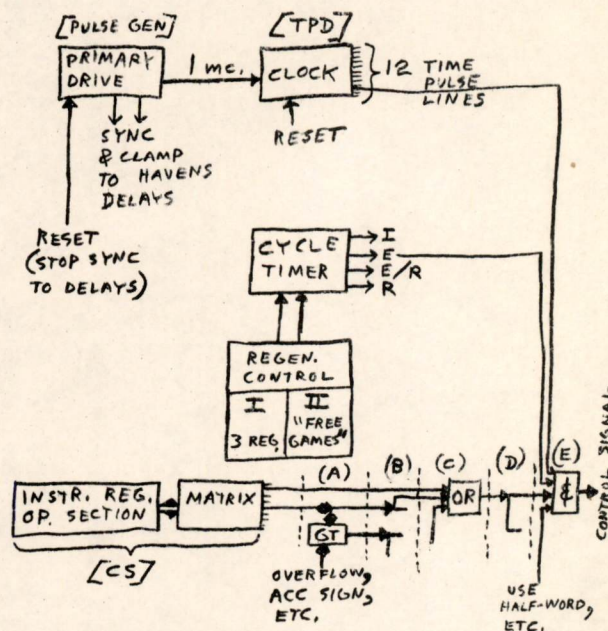 [PULSE GEN]
PRIMARY
DRIVE
1 mc.
[TPD]
CLOCK
12 TIME
PULSE
LINES
SYNC
& CLAMP
TO HAVENS
DELAYS
RESET
RESET
(STOP SYNC
TO DELAYS)
CYCLE
TIMER
I
E
E/R
R
REGEN.
CONTROL
I
3 REG.
II
"FREE
GAMES"
INSTR. REG.
OP. SECTION
MATRIX
[CS]
(A)
(B)
(C)
(D)
(E)
GT
OR
&
CONTROL SIGNAL
OVERFLOW,
ACC SIGN,
ETC.
USE
HALF-WORD,
ETC.